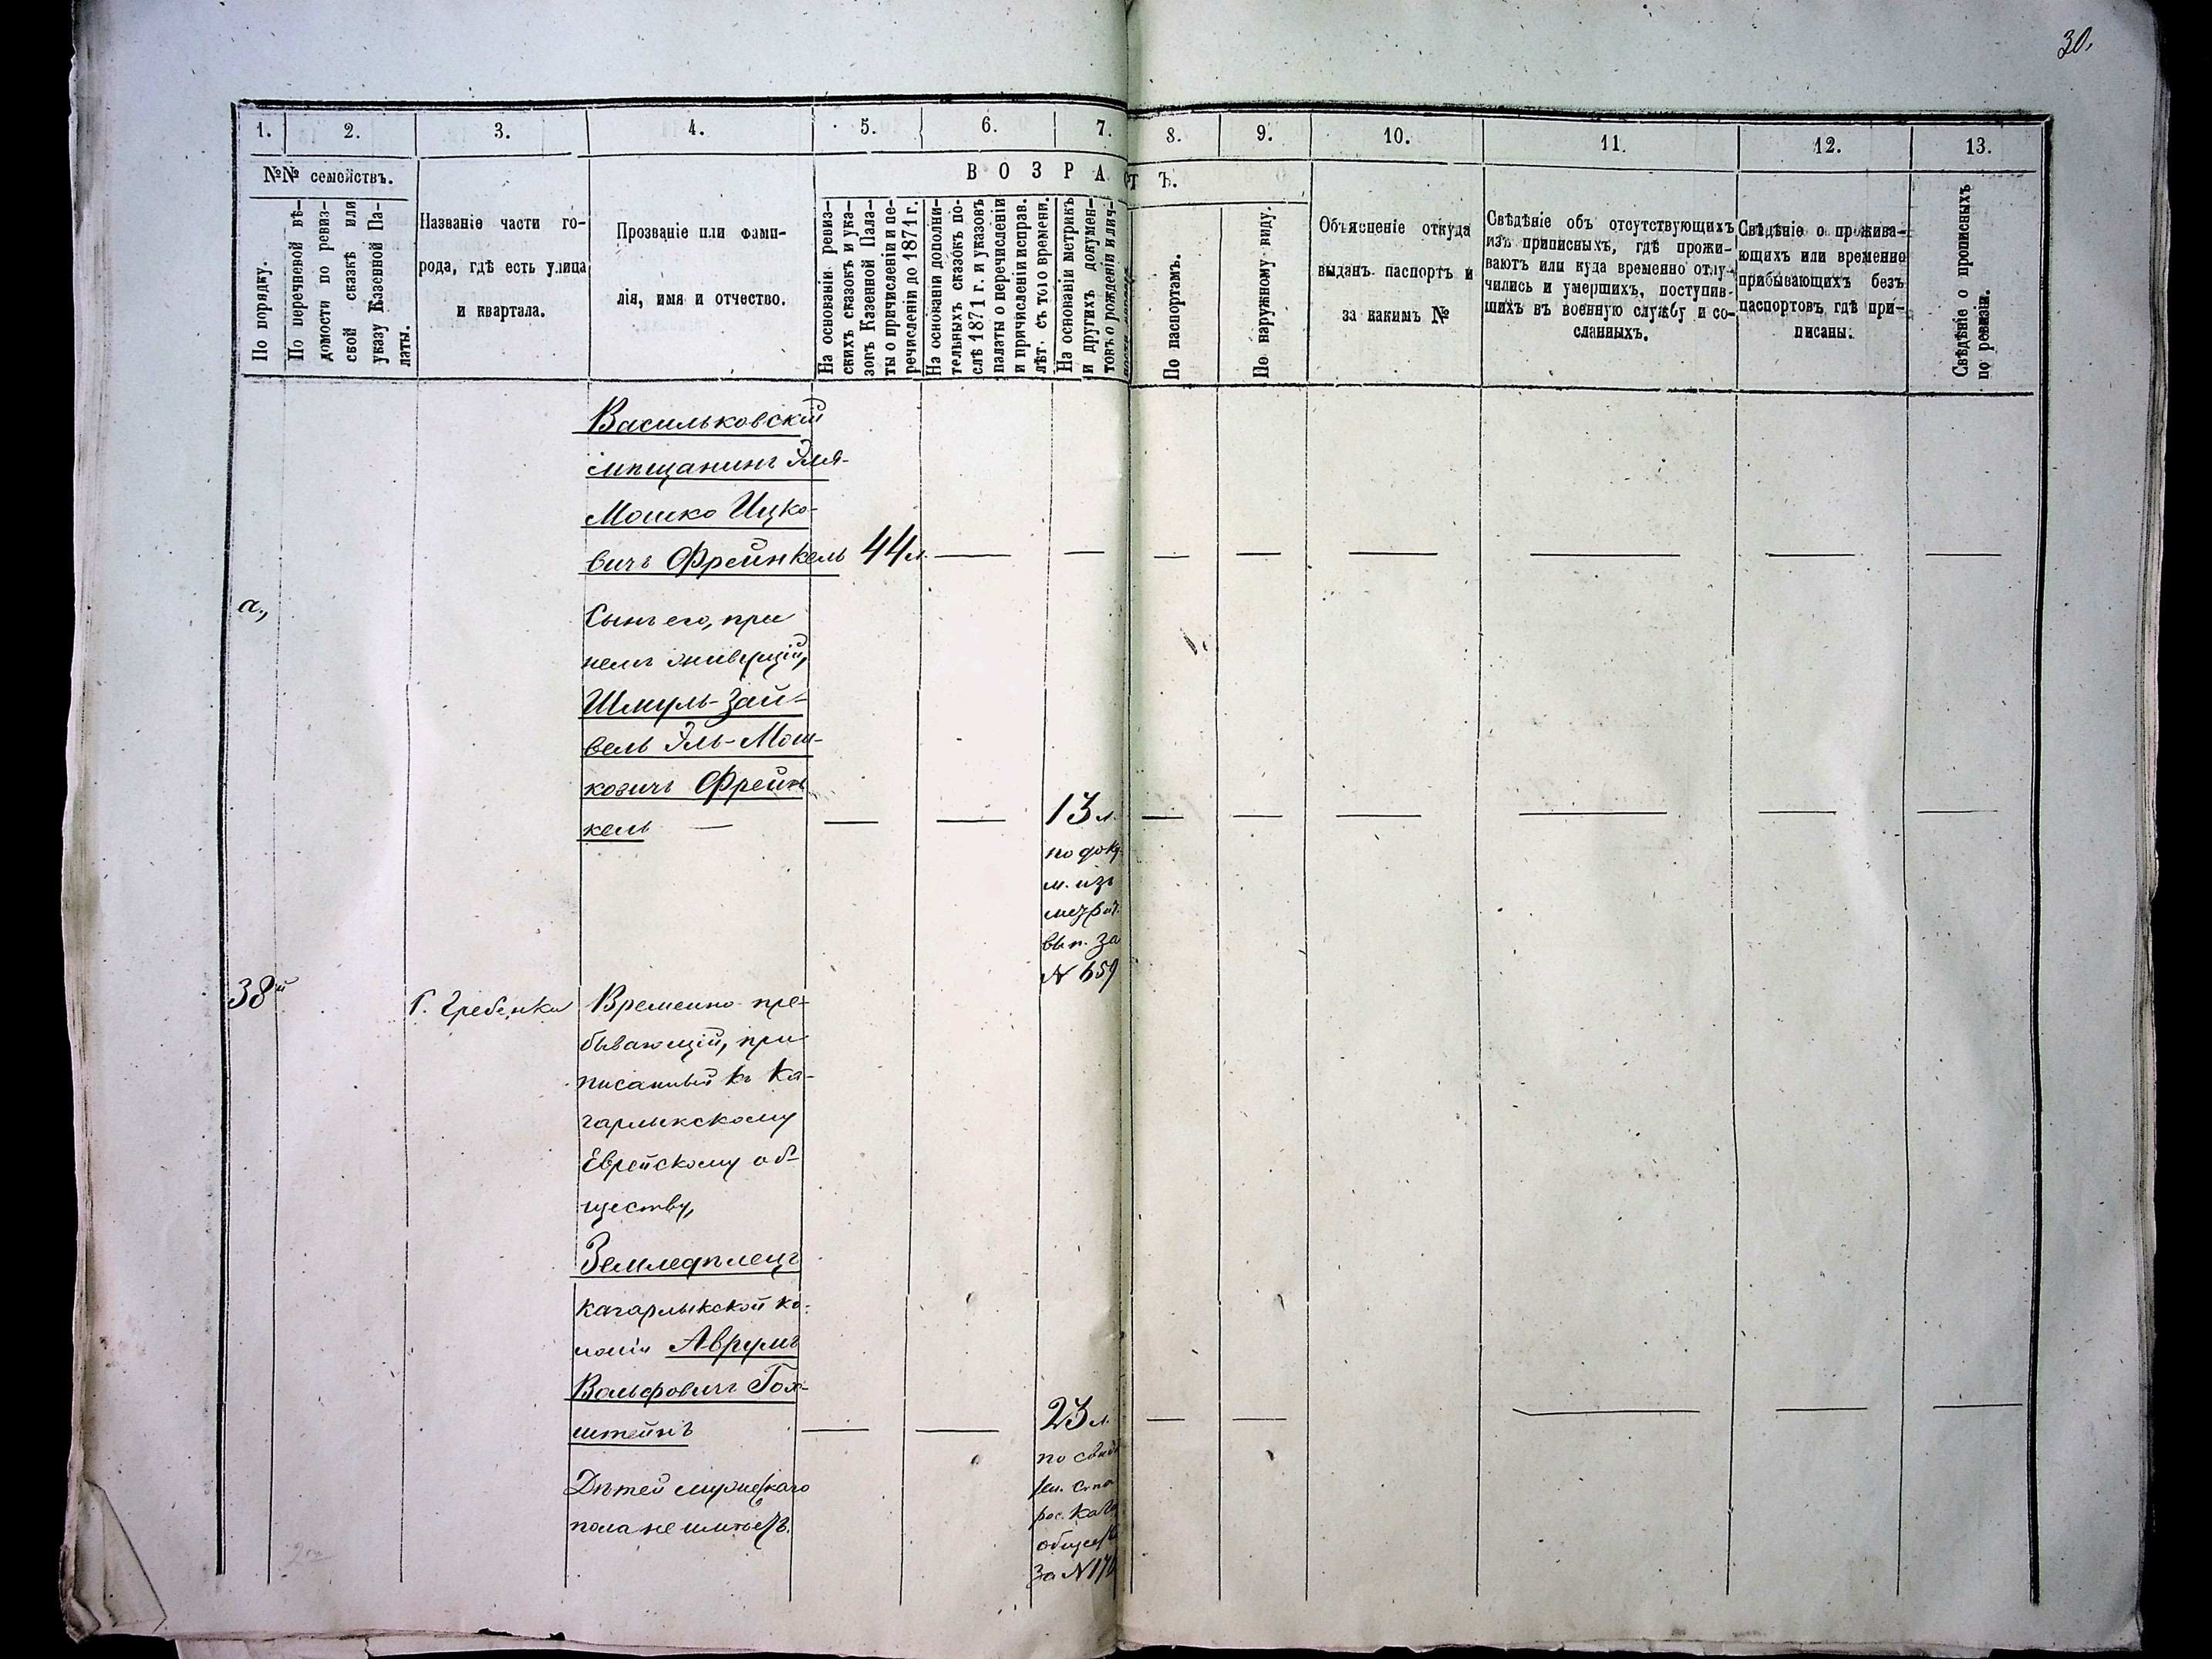 30.
1. 2. 3. 4. 5. 6. 7. 8. 9. 10. 11. 12. 13.
№№ семействъ.
В О З Р А С Т Ъ.
По порядку.
По перечневой вѣ-
домости по ревиз-
ской сказкѣ или
указу Казенной Па-
латы.
Названіе части го-
рода, гдѣ есть улица
и квартала.
Прозваніе или фами-
лія, имя и отчество.
На основаніи ревиз-
скихъ сказокъ и ука-
зовъ Казенной Пала-
ты о причисленіи и пе-
речисленіи до 1871 г.
На основаніи дополни-
тельныхъ сказокъ по-
слѣ 1871 г. и указовъ
палаты о перечисленіи
и причисленіи исправ.
лѣт. съ того времени.
На основаніи метрикъ
и другихъ докумен-
товъ о рожденіи и лич-
По паспортамъ.
По наружному виду.
Объясненіе откуда
выданъ паспортъ и
за какимъ №
Свѣдѣніе объ отсутствующихъ
изъ приписныхъ, гдѣ прожи-
ваютъ или куда временно отлу-
чились и умершихъ, поступив-
шихъ въ военную службу и со-
сланныхъ.
Свѣдѣніе о прожива-
ющихъ или временно
прибывающихъ безъ
паспортовъ, гдѣ при-
писаны.
Свѣдѣніе о прописныхъ
по ревизи.
Васильковскій
мѣщанинъ Эля-
Мошко Ицко-
вичъ Фрейнкель 44 л.
а.,
Сынъ его, при
немъ живущій,
Шмуль-Зай-
вель Эль-Мош-
ковичъ Фрейн
кель
13 л.
по доку
м. изъ
метрич.
вып. за
№ 659
38й Г. Гребенка Временно пре-
бывающій, при
писанный къ Ка-
гарлыкскому
Еврейскому об-
ществу,
Земледѣлецъ
Кагарлыкской ко-
лоніи Аврумъ
Вольфовичъ Гол-
штейнъ
23 л.
Дѣтей мужескаго
пола не имѣетъ.
по
общес
за №